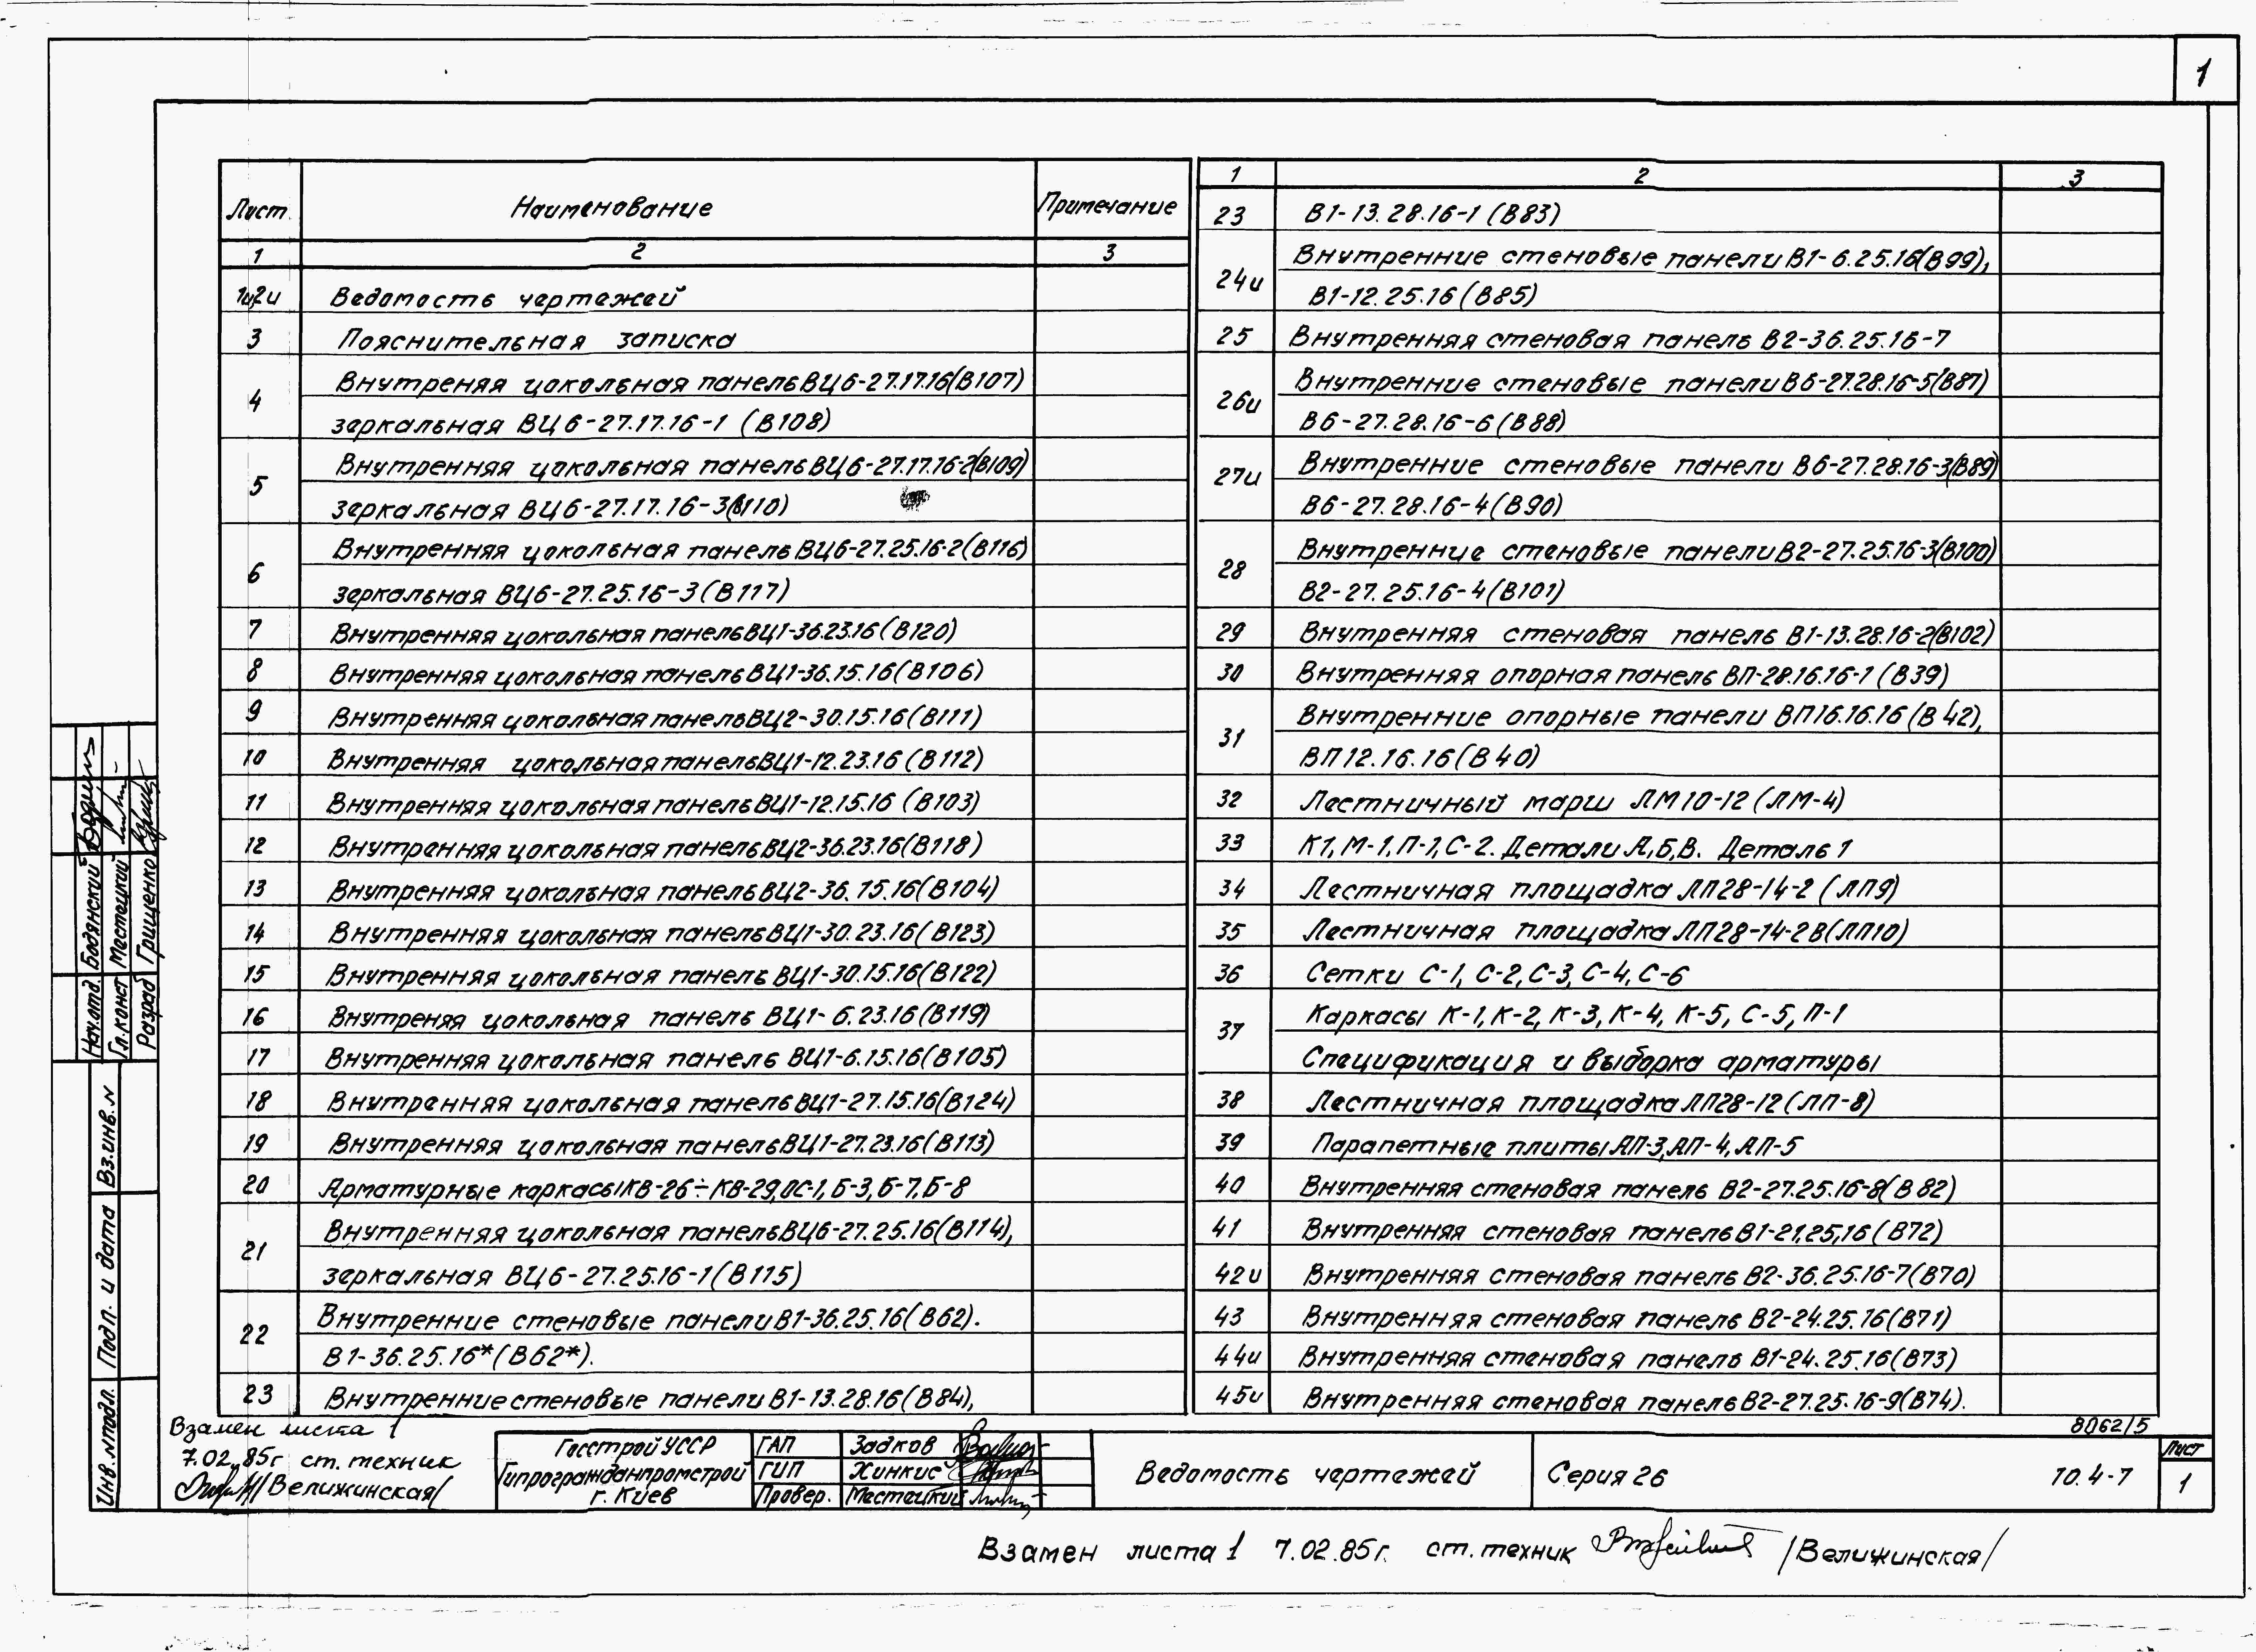 1
Лист Наименование Примечание
1 2 3
1и,2и Ведомость чертежей
3 Пояснительная записка
4 Внутреняя цокольная панель ВЦ6-27.17.16(В107)
зеркальная ВЦ6-27.17.16-1 (В108)
5 Внутренняя цокольная панель ВЦ6-27.17.16-2(В109)
зеркальная ВЦ6-27.17.16-3(В110)
6 Внутренняя цокольная панель ВЦ6-27.25.16-2(В116)
зеркальная ВЦ6-27.25.16-3(В117)
7 Внутренняя цокольная панель ВЦ1-36.23.16(В120)
8 Внутренняя цокольная панель ВЦ1-36.15.16(В106)
9 Внутренняя цокольная панель ВЦ2-30.15.16(В111)
10 Внутренняя цокольная панель ВЦ1-12.23.16(В112)
11 Внутренняя цокольная панель ВЦ1-12.15.16 (В103)
12 Внутренняя цокольная панель ВЦ2-36.23.16(В118)
13 Внутренняя цокольная панель ВЦ2-36.15.16(В104)
14 Внутренняя цокольная панель ВЦ1-30.23.16(В123)
15 Внутренняя цокольная панель ВЦ1-30.15.16(В122)
16 Внутреняя цокольная панель ВЦ1-6.23.16(В119)
17 Внутренняя цокольная панель ВЦ1-6.15.16(В105)
18 Внутренняя цокольная панель ВЦ1-27.15.16(В124)
19 Внутренняя цокольная панель ВЦ1-27.23.16(В113)
20 Арматурные каркасы КВ-26÷КВ-29,ОС-1,Б-3,Б-7,Б-8
21 Внутренняя цокольная панель ВЦ6-27.25.16(В114),
зеркальная ВЦ6-27.25.16-1(В115)
22 Внутренние стеновые панели В1-36.25.16(В62).
В1-36.25.16*(В62*).
23 Внутренние стеновые панели В1-13.28.16(В84),
1 2 3
23 В1-13.28.16-1(В83)
24и Внутренние стеновые панели В1-6.25.16(В99),
В1-12.25.16(В85)
25 Внутренняя стеновая панель В2-36.25.16-7
26и Внутренние стеновые панели В6-27.28.16-5(В87)
В6-27.28.16-6(В88)
27и Внутренние стеновые панели В6-27.28.16-3(В89)
В6-27.28.16-4(В90)
28 Внутренние стеновые панели В2-27.25.16-3(В100)
В2-27.25.16-4(В101)
29 Внутренняя стеновая панель В1-13.28.16-2(В102)
30 Внутренняя опорная панель ВП-28.16.16-1 (В39)
31 Внутренние опорные панели ВП16.16.16(В42),
ВП12.16.16(В40)
32 Лестничный марш ЛМ10-12(ЛМ-4)
33 К1,М-1,П-1,С-2. Детали А,Б,В. Деталь 1
34 Лестничная площадка ЛП28-14-2 (ЛП9)
35 Лестничная площадка ЛП28-14-2В(ЛП10)
36 Сетки С-1, С-2,С-3, С-4, С-6
37 Каркасы К-1, К-2, К-3, К-4, К-5, С-5, П-1
Спецификация и выборка арматуры
38 Лестничная площадка ЛП28-12(ЛП-8)
39 Парапетные плиты АП-3,АП-4,АП-5
40 Внутренняя стеновая панель В2-27.25.16-8(В82)
41 Внутренняя стеновая панель В1-21,25,16(В72)
42и Внутренняя стеновая панель В2-36.25.16-7(В70)
43 Внутренняя стеновая панель В2-24.25.16(В71)
44и Внутренняя стеновая панель В1-24.25.16(В73)
45и Внутренняя стеновая панель В2-27.25.16-9(В74).
8062/5
Нач.отд. Бодянский
Гл.конст Местецкий
Разраб Грищенко
Вз.инв.N
Подп. и дата
Инв.Nподл.
Взамен листа 1
7.02.85г ст. техник
/Велижинская/
Госстрой УССР
Гипрогражданпромстрой
г. Киев
ГАП Задков
ГИП Хинкис
Провер. Местецкий
Ведомость чертежей
Серия 26
10.4-7
Лист
1
Взамен листа 1 7.02.85г. ст. техник /Велижинская/